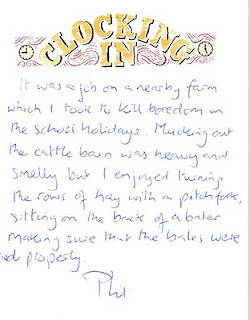 CLOCKING
IN
It was a job on a nearby farm
which I took to kill boredom in
the school holidays. Mucking out
the cattle barn was heavy and
smelly but I enjoyed turning
the rows of hay with a pitchfork,
sitting on the back of a baler
making sure that the bales were
ied properly.
Phil